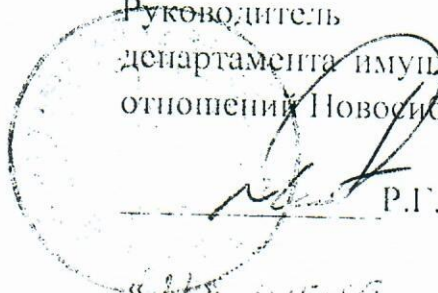 Руководитель
департамента имущ
отношений Новосиб
Р.Г.